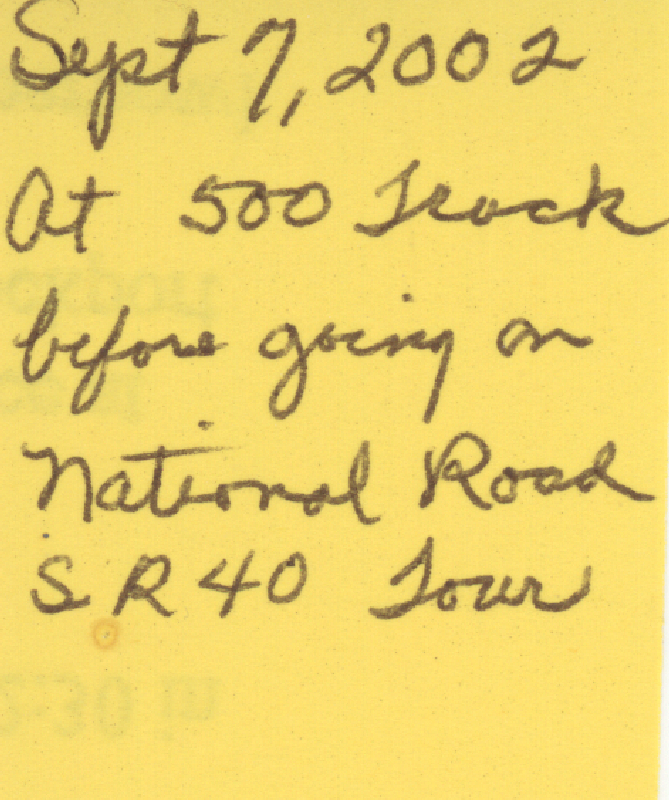 Sept 7, 2002
At 500 Track
before going on
National Road
SR40 Tour